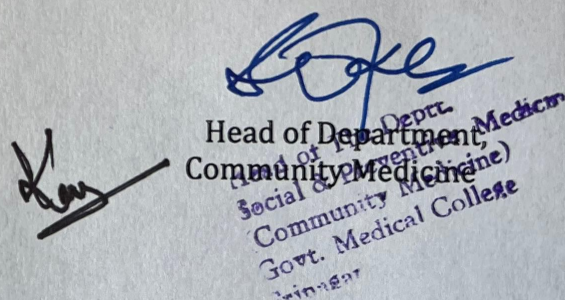 Head of Department,
Community Medicine
Head of the Deptt.
Social & Preventive Medicin
(Community Medicine)
Govt. Medical College
Srinagar